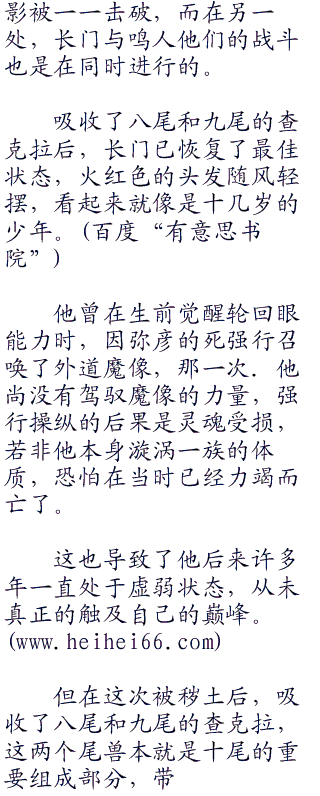 影被一一击破，而在另一
处，长门与鸣人他们的战斗
也是在同时进行的。
吸收了八尾和九尾的查
克拉后，长门已恢复了最佳
状态，火红色的头发随风轻
摆，看起来就像是十几岁的
少年。(百度“有意思书
院”)
他曾在生前觉醒轮回眼
能力时，因弥彦的死强行召
唤了外道魔像，那一次．他
尚没有驾驭魔像的力量，强
行操纵的后果是灵魂受损，
若非他本身漩涡一族的体
质，恐怕在当时已经力竭而
亡了。
这也导致了他后来许多
年一直处于虚弱状态，从未
真正的触及自己的巅峰。
(www.heihei66.com)
但在这次被秽土后，吸
收了八尾和九尾的查克拉，
这两个尾兽本就是十尾的重
要组成部分，带